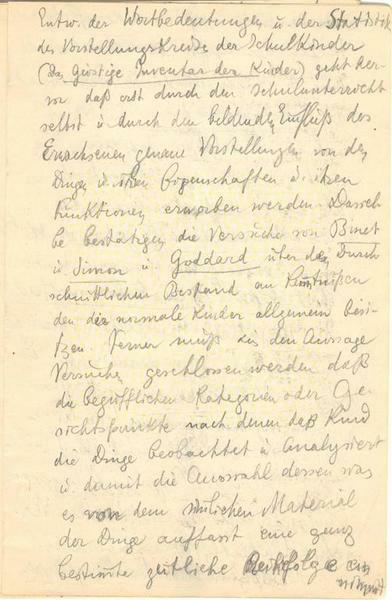 Entw. der Wortbedeutungen u. der Statistik
des Vorstellungskreises der Schulkinder
(Das geistige Inventar der Kinder) geht her-
vor daß erst durch den Schulunterricht
selbst u. durch den bildenden Einfluß des
Erwachsenen genaue Vorstellungen von den
Dingen u. ihren Eigenschaften u. ihren
Funktionen erworben werden. Dassel-
be bestätigen die Versuche von Binet
u. Simon u. Goddard über den Durch-
schnittlichen Bestand an Kentnißen
den die normale Kinder allgemein besi-
tzen. Ferner muß aus den Aussage
Versuchen geschlossen werden daß
die begrifflichen Kategorien oder Ge-
sichtspunkte nach denen daß Kind
die Dinge beobachtet u. Analysiert
u. damit die Auswahl dessen was
es von dem sinlichen Material
der Dinge auffasst eine ganz
bestimte zeitliche Reihfolge ein